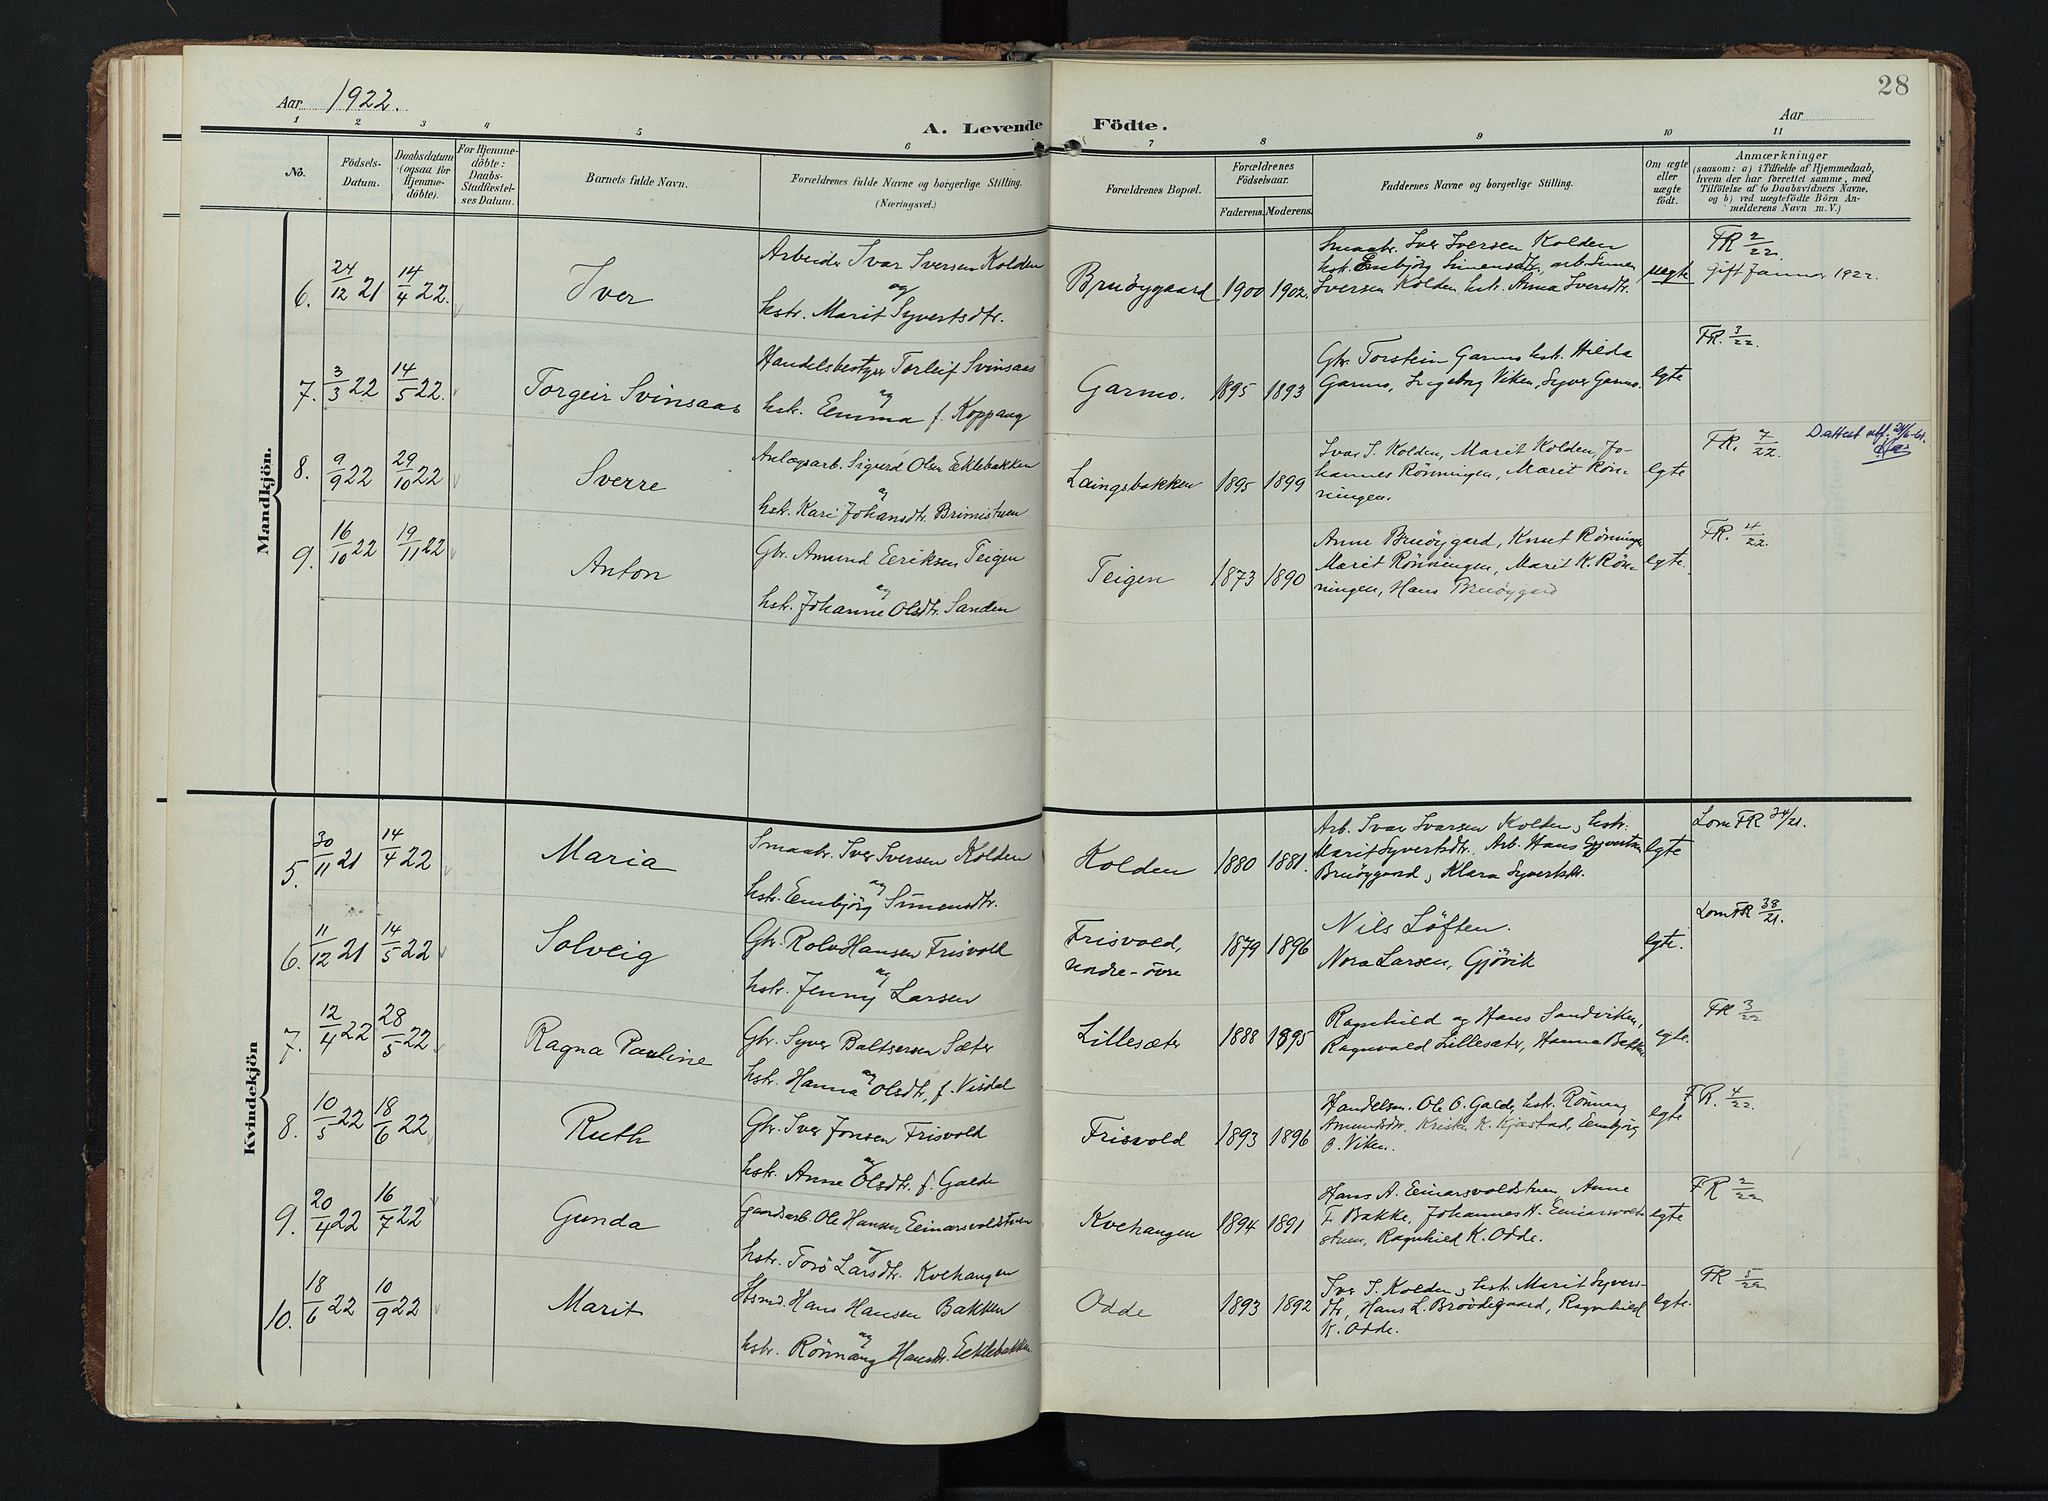 28
Aar 1922.
Aar
A. Levende Födte.
1 2 3 4 5 6 7 8 9 10 11
No.
Födsels-Datum.
Daabsdatum (ogsaa for Hjemmedöbte).
For Hjemmedöbte: Daabs-Stadfæstelses Datum.
Barnets fulde Navn.
Forældrenes fulde Navne og borgerlige Stilling.
(Næringsvei.)
Forældrenes Bopæl.
Forældrenes Födselsaar.
Faderens. Moderens.
Faddernes Navne og borgerlige Stilling.
Om ægte eller uægte födt.
Anmærkninger
(saasom: a) i Tilfælde af Hjemmedaab,
hvem der har forrettet samme, med
Tilföielse af to Daabsvidners Navne,
og b) ved uægtefödte Börn An-
melderens Navn m. V.)
Mandkjön.
6. 24/12 21 14/4 22. Iver
Arbeider Ivar Iversen Kolden
og
hstr. Marit Syvertsdtr.
Bruöygaard 1900 1902.
Smaabr. Iver Iversen Kolden
hst. Embjörg Simensdtr, arb. Simen
Iversen Kolden, hst. Anna Iversdtr.
uægte
FR 2/22
Gift januar 1922.
7. 3/3 22 14/5 22. Torgeir Svinsaas
Handelsbestyer Torleif Svinsaas
og
hstr. Emma f. Koppang
Garmo. 1895 1893
Gbr. Torstein Garmo hst. Hilda
Garmo, Ingeborg Viken, Syver Garmo.
egte
FR. 3/22.
8. 9/9 22 29/10 22 Sverre
Anlægsarb. Sigurd Olsen Eklebakken
og
hstr. Kari Johansdtr. Brimistuen
Laingsbakken 1895 1899
Ivar I. Kolden, Marit Kolden, Jo-
hannes Rønningen, Marit Røn-
ningen.
egte
FR. 7/22.
Dattest utf. 21/6-61.
9. 16/10 22 19/11 22 Anton
Gbr. Amund Eriksen Teigen
og
hstr. Johanne Olsdtr. Sanden
Teigen 1873 1890
Anne Bruöygard, Knut Rønningen
Marit Rønningen, Marit K. Røn-
ningen, Hans Bruöygard
egte.
FR. 4/22.
Kvindekjön
5. 30/11 21 14/4 22 Maria
Smaabr. Iver Iversen Kolden
og
hstr. Embjörg Simensdtr.
Kolden 1880 1881.
Arb. Ivar Ivarsen Kolden, hstr.
Marit Syvertsdtr. Arb. Hans Syvertsen
Bruöygard, Klara Syvertsdtr.
egte
Lom FR 34/21.
6. 11/12 21 14/5 22 Solveig
Gbr. Rolv Hansen Frisvold
og
hstr. Jenny Larsen
Frisvold,
undre-övre
1879 1896
Nils Löften.
Nora Larsen, Gjövik
egte.
Lom FR 38/21.
7. 12/4 22 28/5 22 Ragna Pauline
Gbr. Syver Baltsersen Sæter
og
hstr. Hanna Olsdtr, f. Visdal
Lillesæter 1888 1895
Ragnhild og Hans Sandviken,
Ragnvald Lillesæter, Hanna Bakken
egte.
FR 3/22
8. 10/5 22 18/6 22 Ruth
Gbr. Iver Jonsen Frisvold
og
hstr. Anne Olsdtr. f. Galde
Frisvold 1893 1896
Handelsm. Ole O. Galde, hst. Rønnaug
Amundsdtr. K. Kjæstad, Embjörg
O. Viken.
egte
FR. 4/22.
9. 20/4 22 16/7 22 Gunda
Gaardsarb. Ole Hansen Einarsvoldstuen
og
hstr. Torö Larsdtr. Kvehaugen
Kvehaugen 1894 1891
Hans A. Einarsvoldstuen, Anne
T. Bakke, Johannes H. Einarsvold-
stuen, Ragnhild K. Odde.
egte
FR 2/22
10. 18/6 22 10/9 22 Marit
Hsmd. Hans Hansen Bakken
og
hstr. Rönnaug Hansdtr. Eklebakken
Odde 1893 1892
Iver I. Kolden, hst. Marit Syvers-
dtr, Hans L. Brövdegaard, Ragnhild
K. Odde.
egte.
FR 5/22